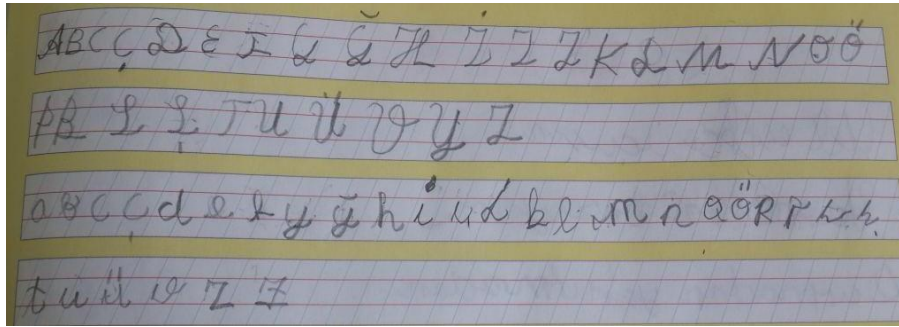 A B C Ç D E F G Ğ H I İ J K L M N O Ö
P R S Ş T U Ü V Y Z
a b c ç d e f g ğ h i ı j k l m n o ö p r s ş
t u ü v y z